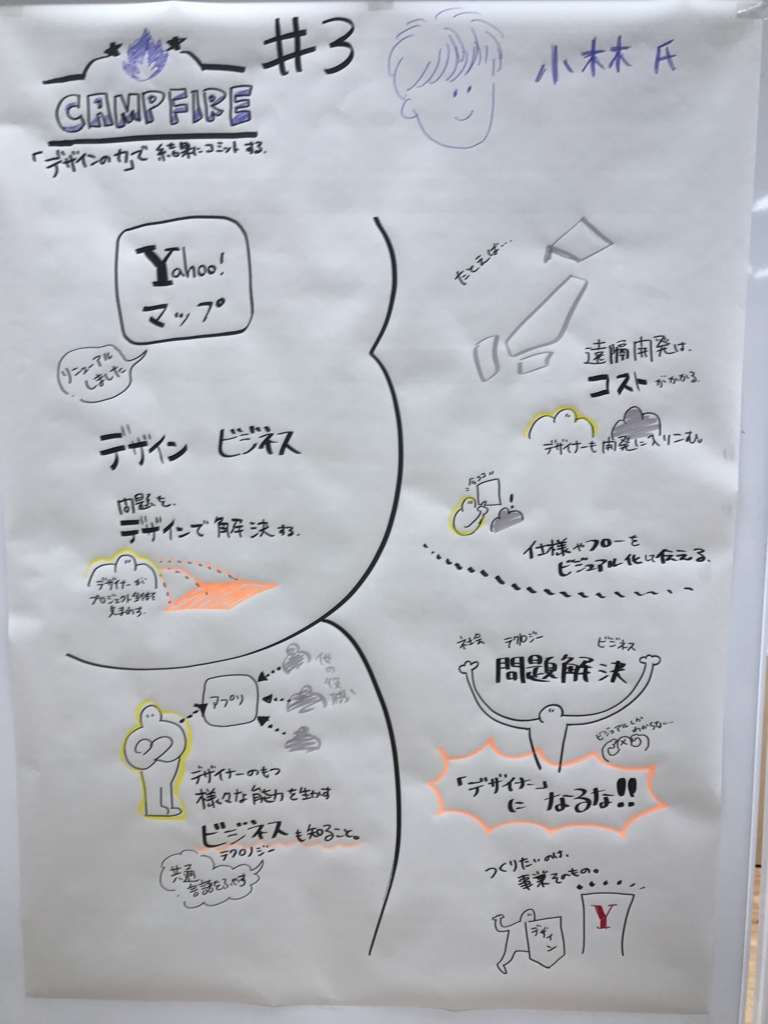 CAMPFIRE
#3
小林氏
「デザインの力」で 結果にコミットする.
Yahoo!
マップ
リニューアル
しました
デザイン ビジネス
問題を.
デザインで解決する.
デザイナーが
プロジェクト全体を
見まわす.
たとえば…
遠隔開発は.
コストがかかる.
デザイナーも開発に入りこむ。
仕様やフローを
ビジュアル化して伝える.
アプリ
他の役割い
デザイナーのもつ
様々な能力を生かす
ビジネスも知ること。
テクノロジー
共通
言語をふやす
社会
テクロジー
ビジネス
問題解決
ビジュアルしか
わからない…
「デザイナー」
に なるな!!
つくりたいのは、
事業そのもの。
デザイン
Y